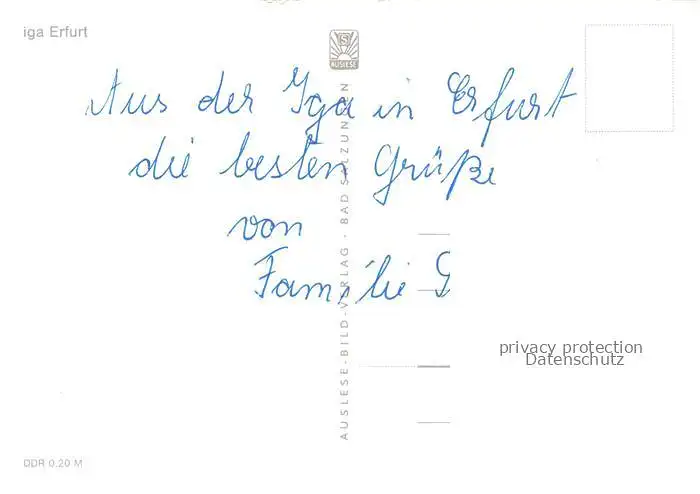 iga Erfurt
S
AUSLESE
Aus der Iga in Erfurt
die besten Grüße
von
Familie G
AUSLESE-BILD-VERLAG · BAD SALZUNGEN
privacy protection
Datenschutz
DDR 0,20 M